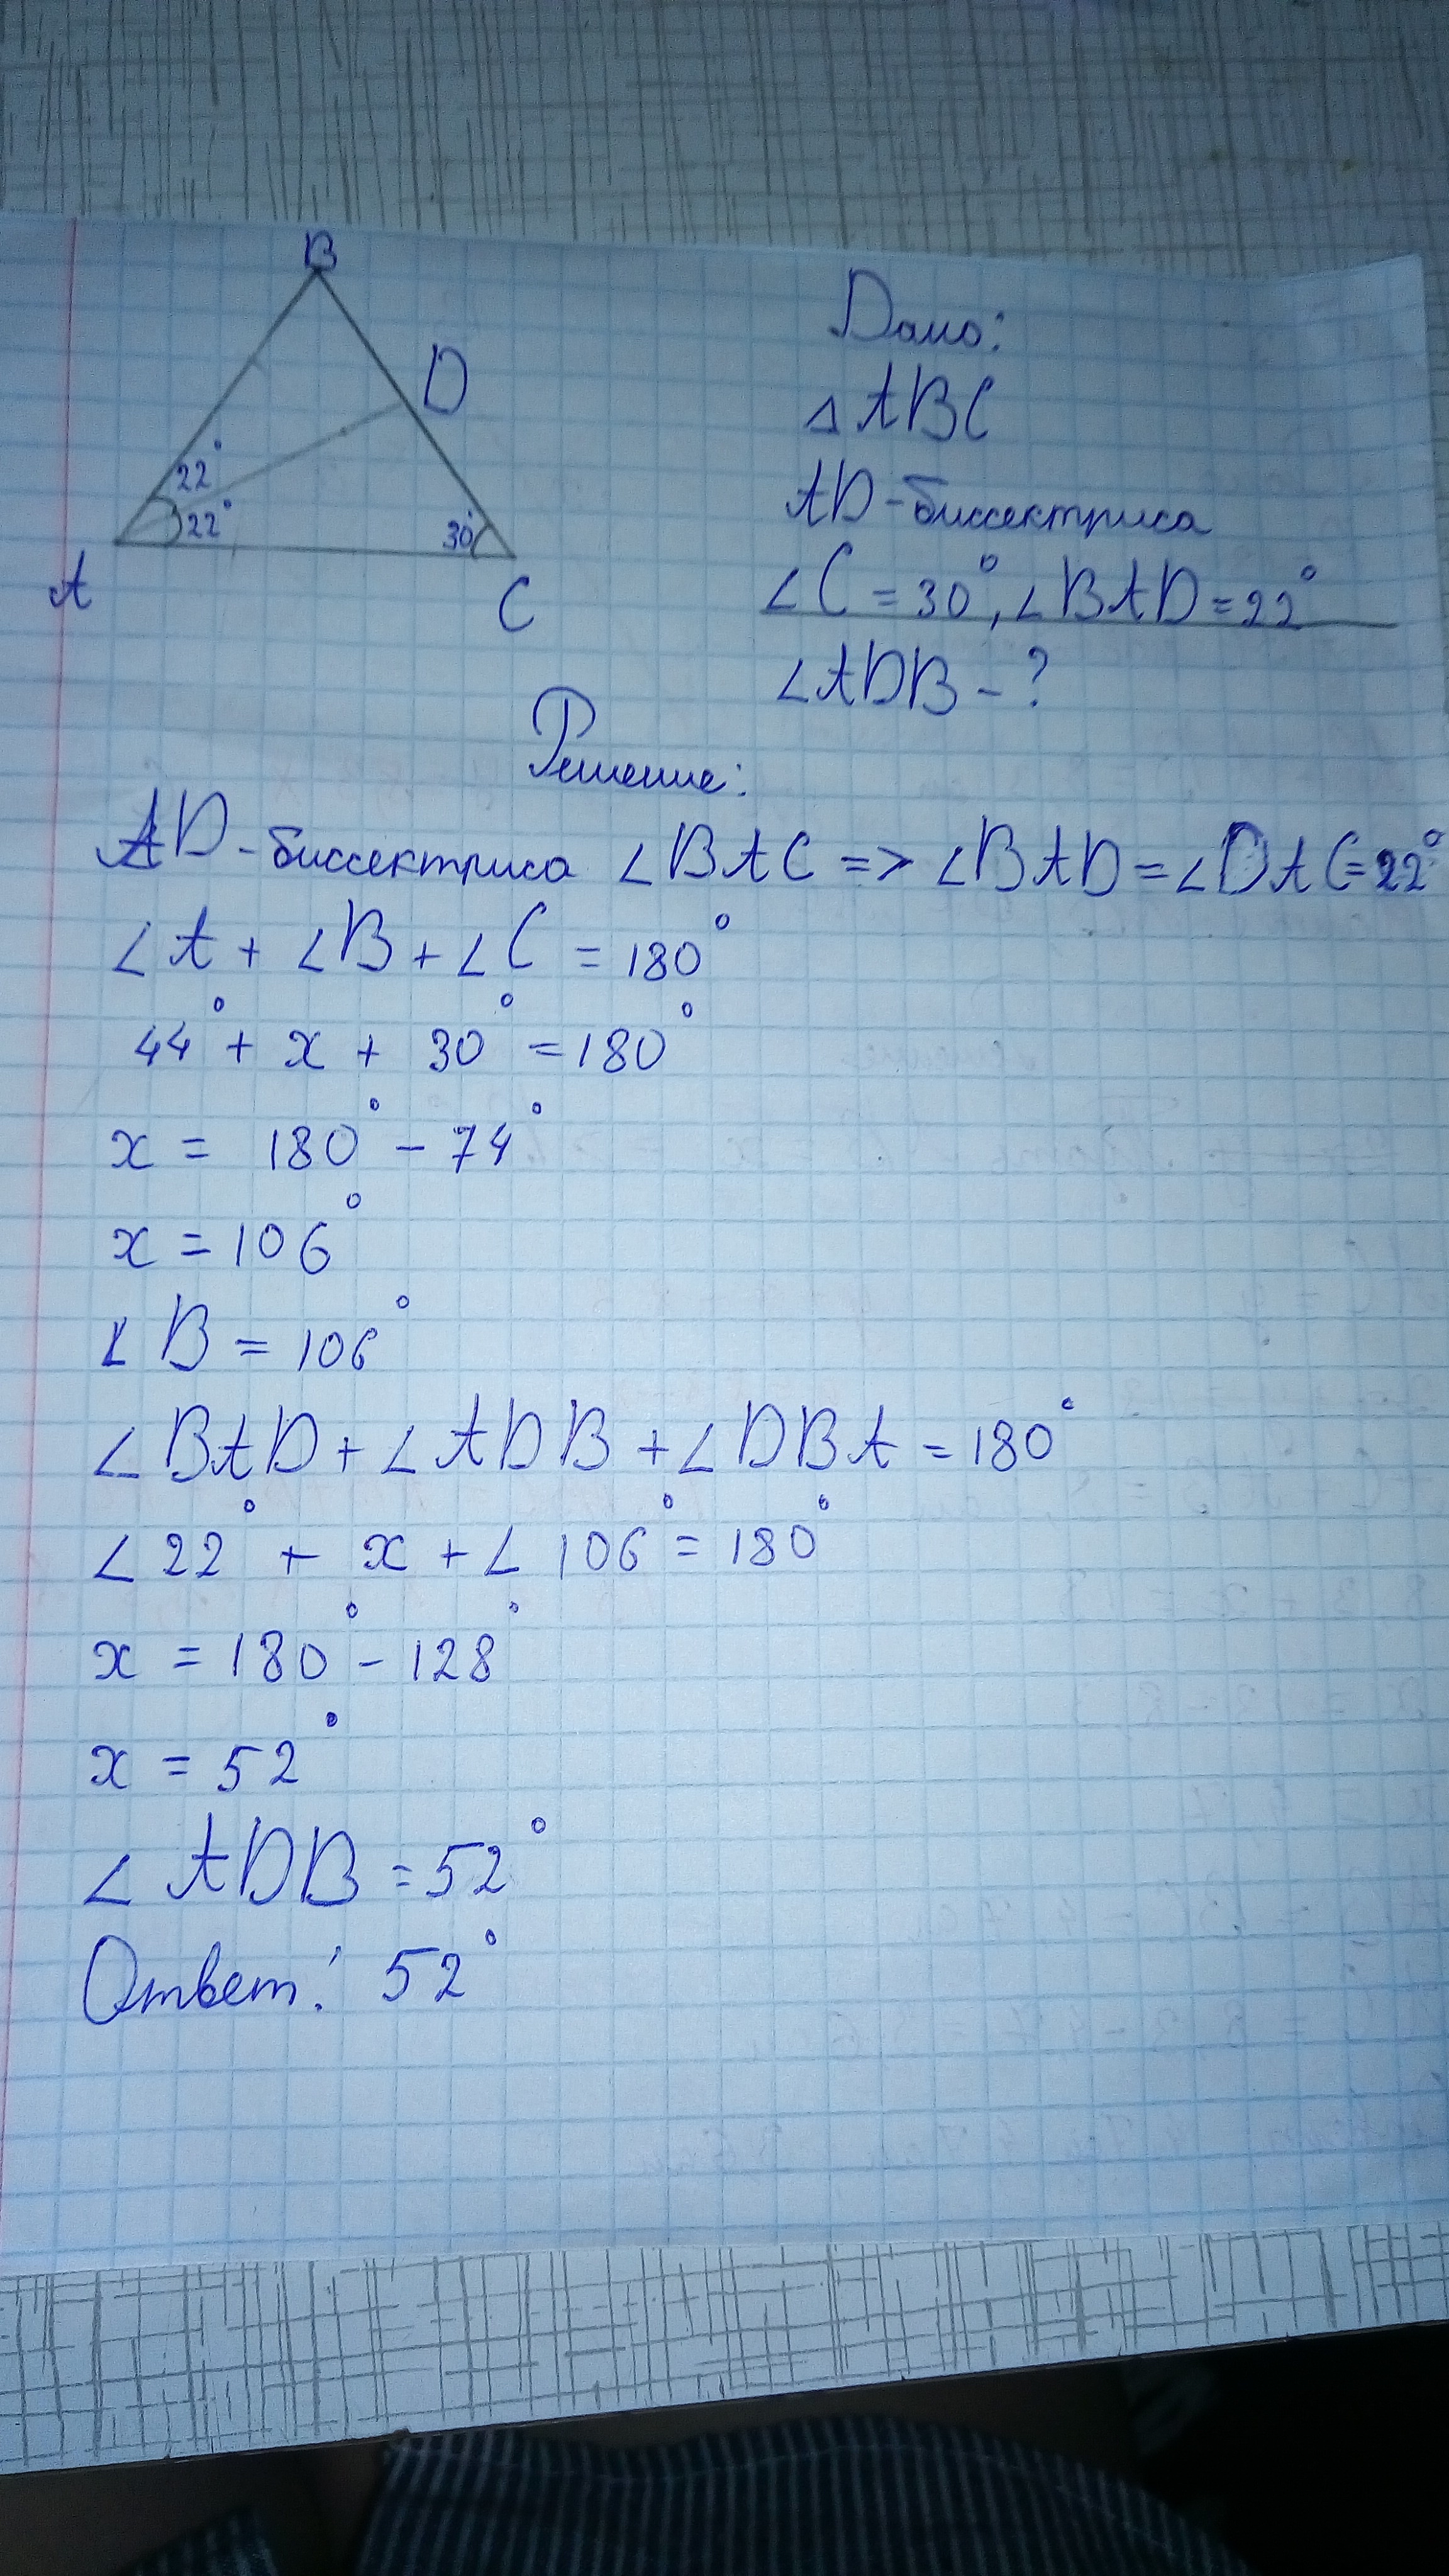 B
D
22°
22°
30°
A
C
Дано:
△ABC
AD-биссектриса
∠C=30°, ∠BAD=22°
∠ADB-?
Решение:
AD-биссектриса ∠BAC => ∠BAD=∠DAC=22°
∠A+∠B+∠C=180°
44°+x+30°=180°
x=180°-74°
x=106°
∠B=106°
∠BAD+∠ADB+∠DBA=180°
∠22°+x+∠106°=180°
x=180°-128°
x=52°
∠ADB=52°
Ответ: 52°